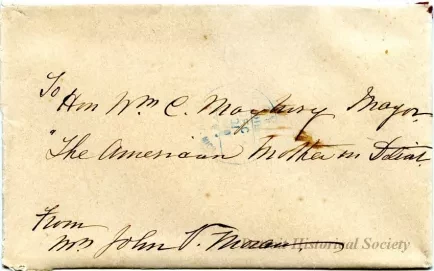 To
Hon Wm C. Maybury Mayor
"The American Mother in Detroit
From
Mrs John V. Moran
Historical Society